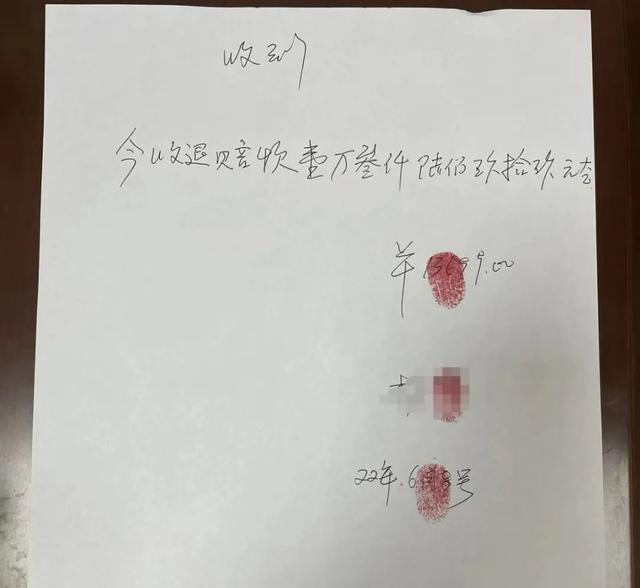 收到
今收退赔款壹万叁仟陆佰玖拾玖元整
¥13699.00
22年.6月8号